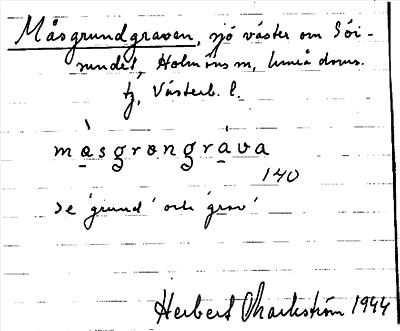 Måsgrundgraven, sjö väster om
sundet, Holmöns sn, Umeå doms.
tj, Västerb. l.
måsgrøngrava
140
se 'grund' och 'grav'
Herbert Markström 1944